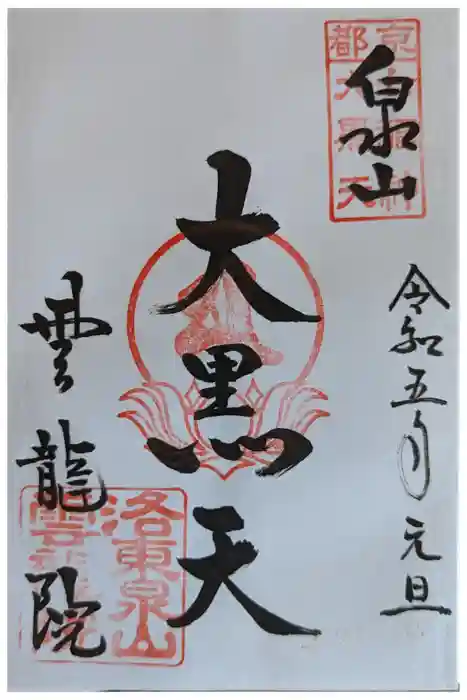 泉山
京都
大黒天
令和五年元旦
大黒天
雲龍院
洛東泉山
雲龍院